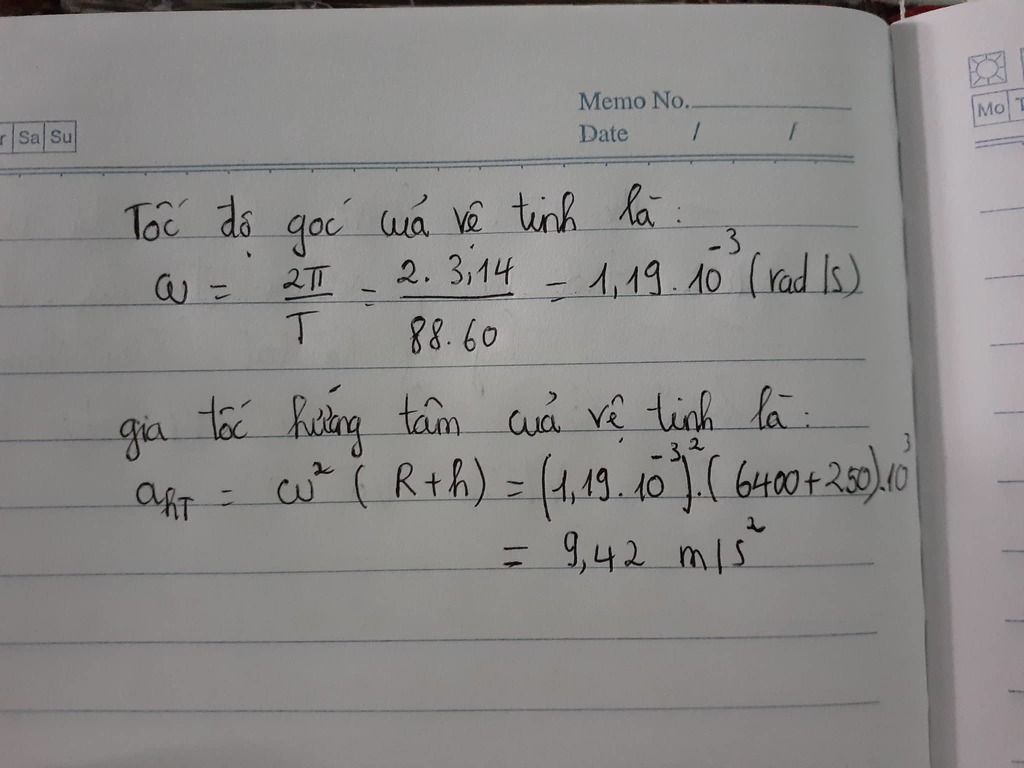 Memo No.
Date / /
r Sa Su
Mo T
Tốc độ góc cuả vệ tinh là:
ω = 2π/T = 2. 3,14/88.60 = 1,19.10⁻³ (rad/s)
gia tốc hướng tâm cuả vệ tinh là:
aₕT = ω² (R+h) = (1,19.10⁻³)².(6400+250).10³
= 9,42 m/s²